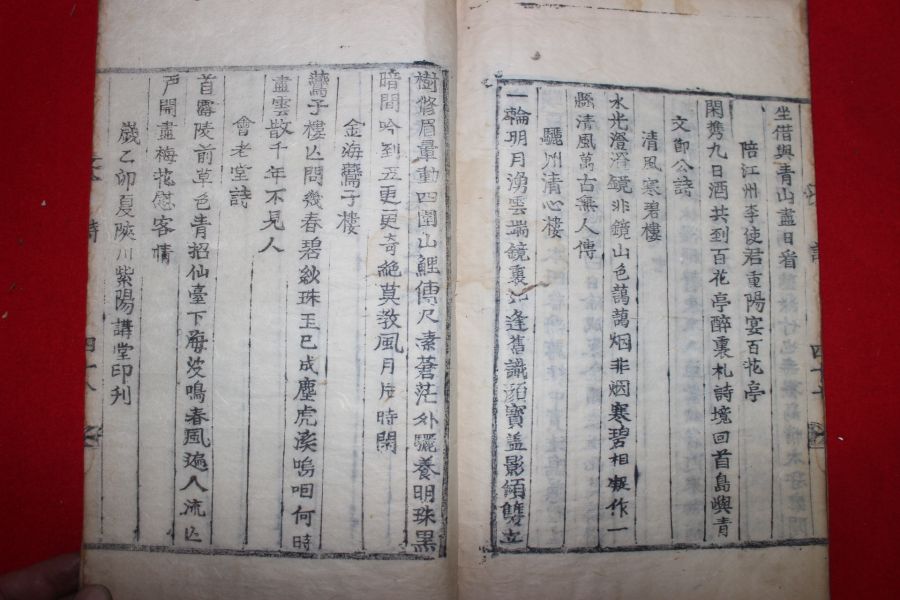 坐借與青山盡日看
陪江州李使君重陽宴百花亭
閑携九日酒共到百花亭醉裏札詩境回首島嶼青
文御公詩
清風寒碧樓
水光澄澄鏡非鏡山色藹藹烟非烟寒碧相凝作一
縣清風萬古無人傳
驪州清心樓
一輪明月湧雲端鏡裏逢舊識顔寶盖影傾雙立
樹修眉暈動四圍山鯉傳尺素蒼茫外驪養明珠黑
暗間吟到五更更奇絶莫教風月片時閑
金海鷰子樓
鷰子樓亾問幾春碧紗珠玉已成塵虎溪嗚咽何時
盡雲散千年不見人
會老堂詩
首露陵前草色青招仙臺下海波鳴春風遍人流亾
戶開盡梅花慰客情
歲乙卯夏陜川紫陽講堂印刋
詩
四十八